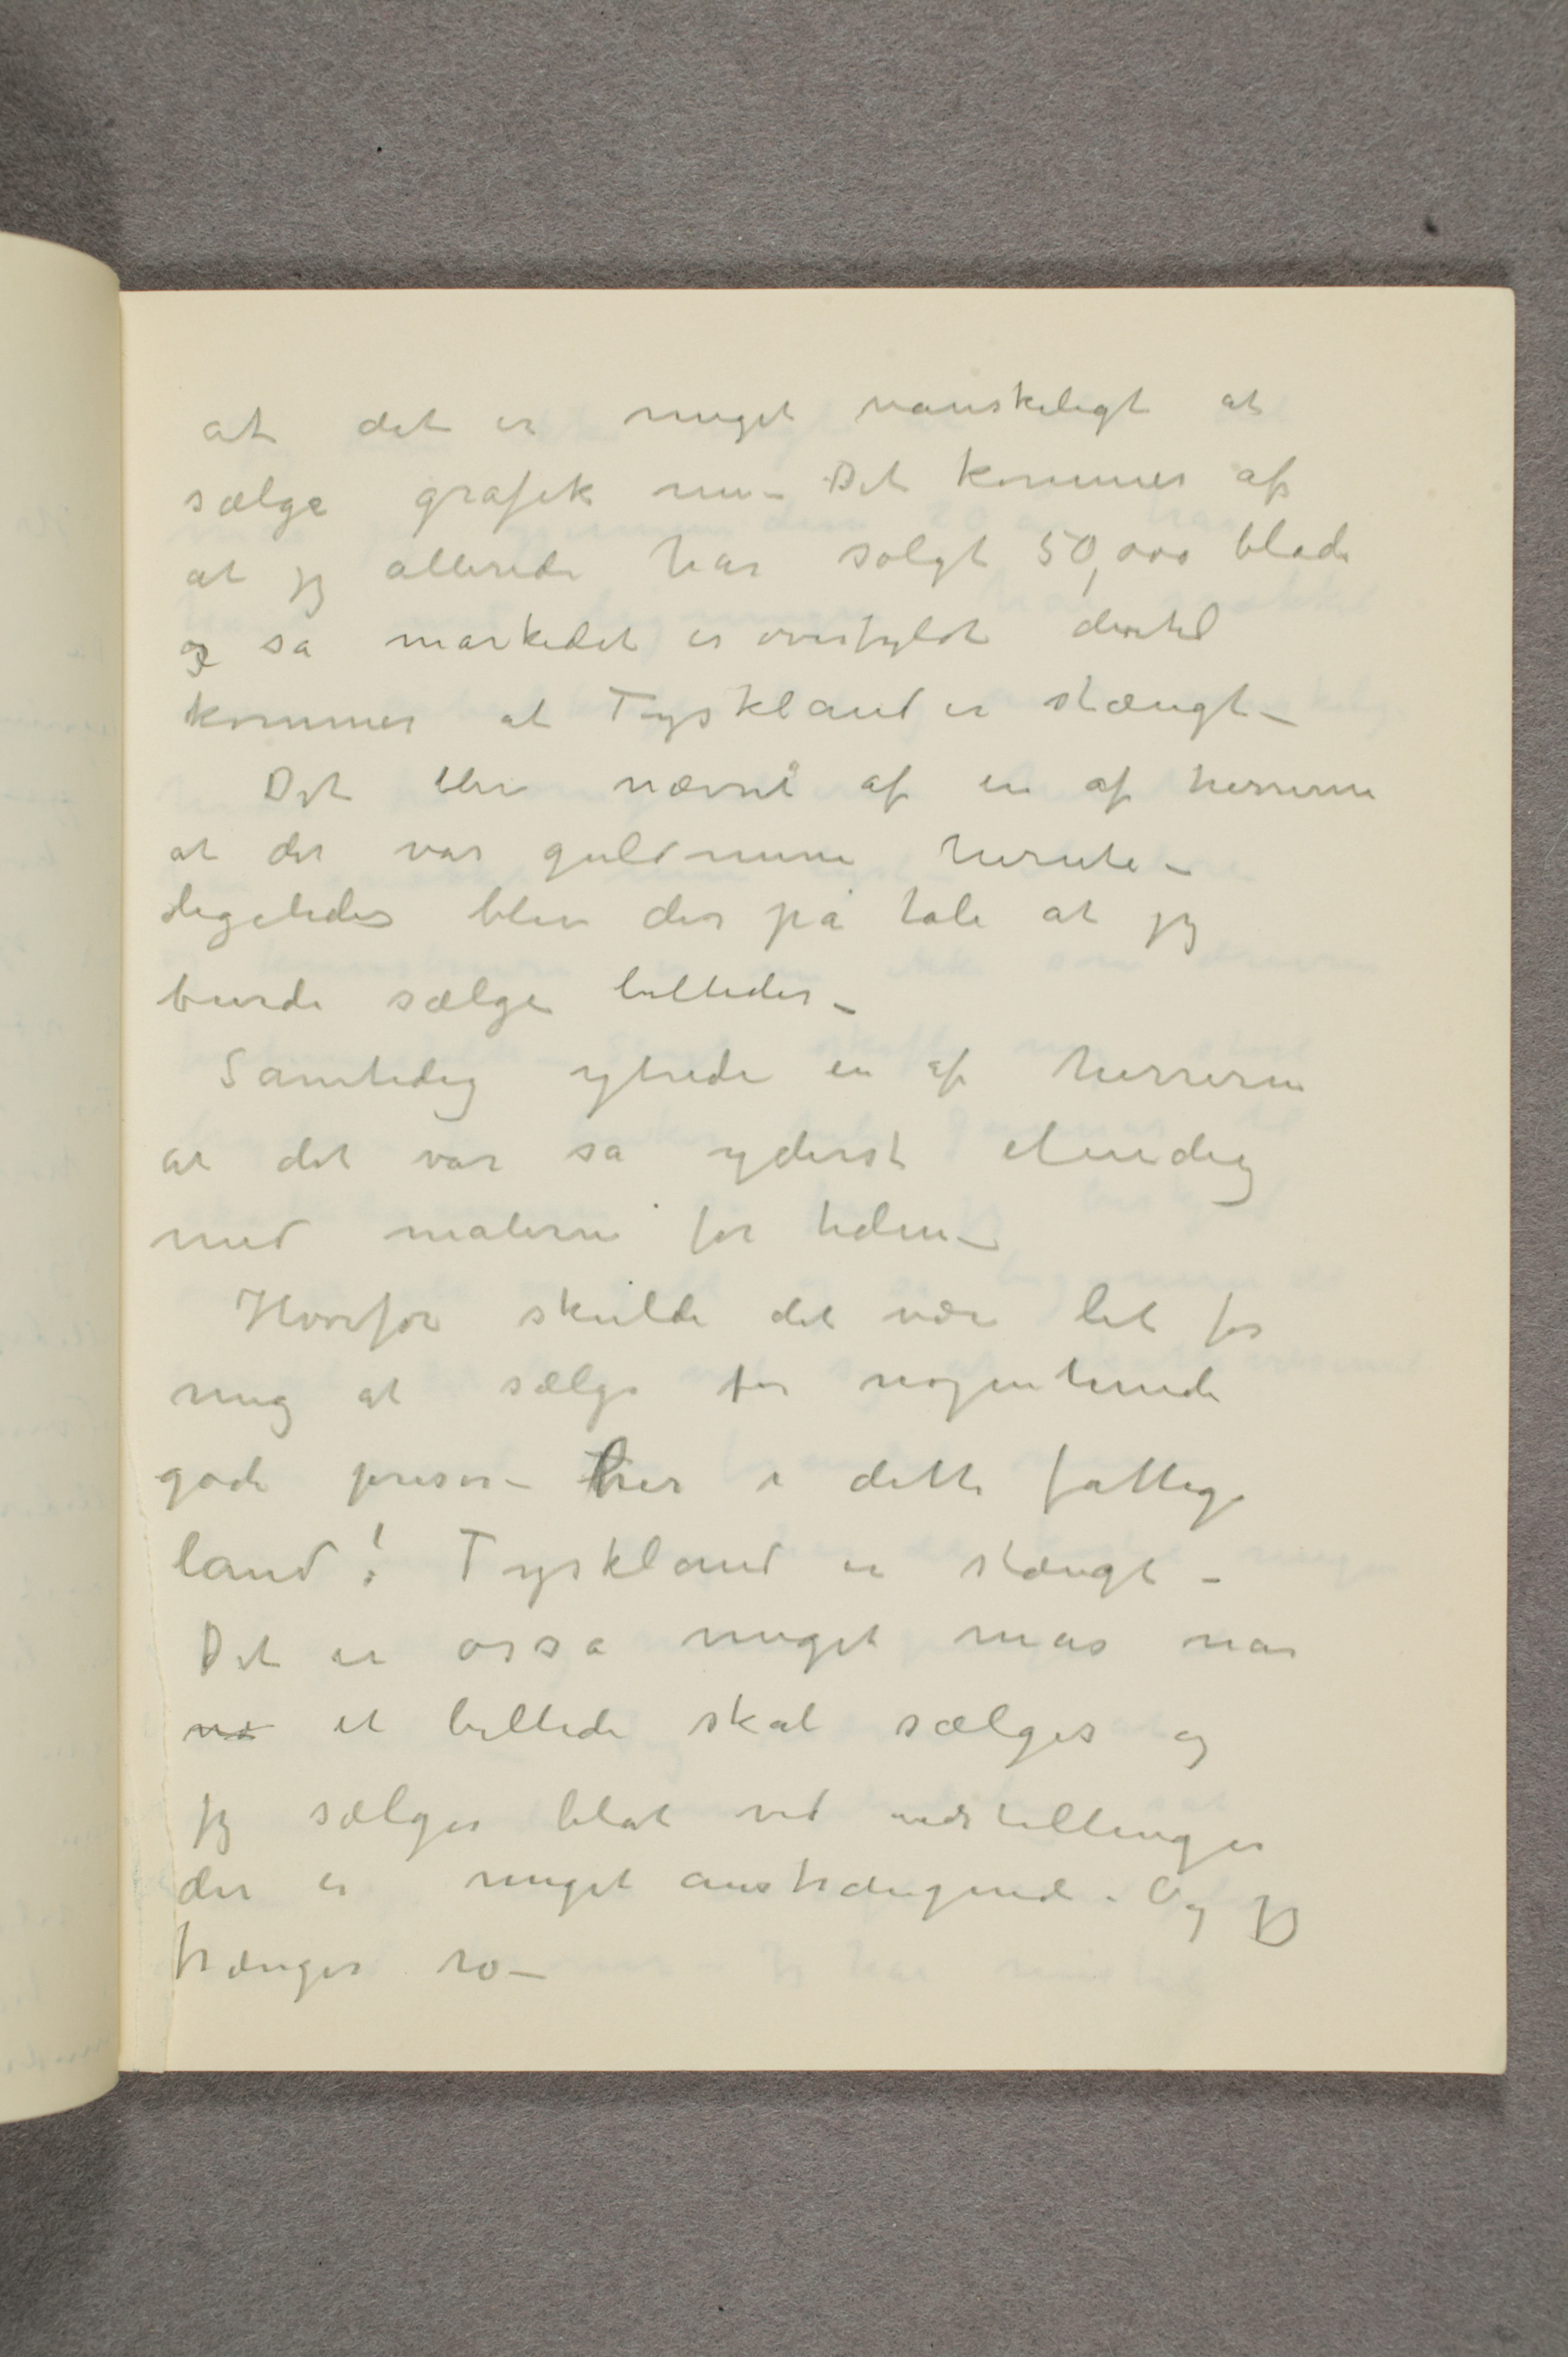 at det er meget vanskeligt at
sælge grafik nu – Det kommer af
at jeg allerede har solgt 50,000 blade
og sa markedet er overfyldt dertil
kommer at Tyskland er stængt –
Det blev nævnt af en af herrerne
at der var guldmine herute –
ligeledes blev der på tale at jeg
burde sælge billeder –
Samtidig ytrede en af herrerne
at det var sa yderst elendig
med malerne for tiden –
Hvorfor skulde det være let for
mig at sælge for nogenlunde
gode priser – her i dette fattige
land! Tyskland er stængt –
Det er ossa meget mas nar
et billede skal sælges og
jeg sælger blot ved udstillinger
der er meget anstrængende. Og jeg
trænger ro –